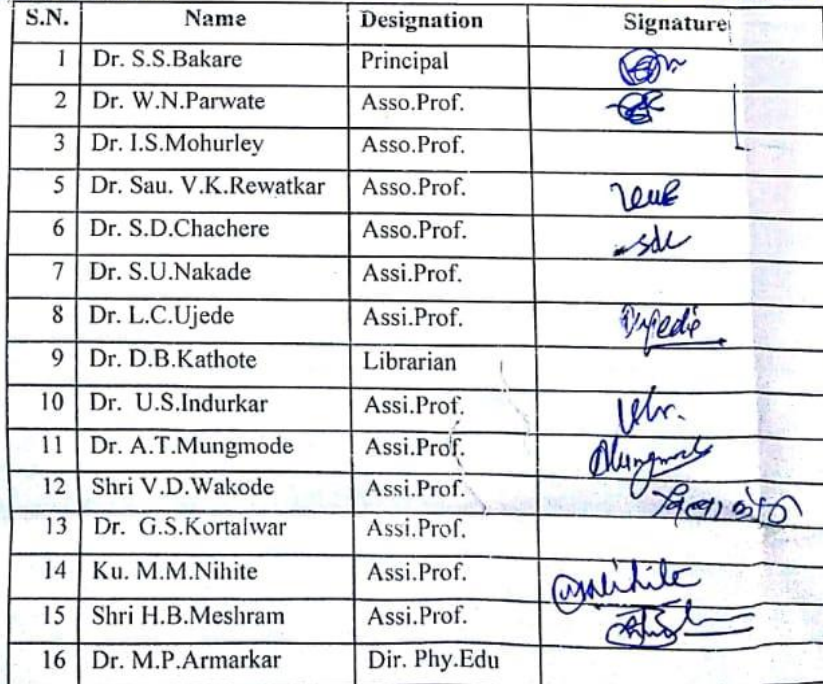 S.N. Name Designation Signature
1 Dr. S.S.Bakare Principal
2 Dr. W.N.Parwate Asso.Prof.
3 Dr. I.S.Mohurley Asso.Prof.
5 Dr. Sau. V.K.Rewatkar Asso.Prof.
6 Dr. S.D.Chachere Asso.Prof.
7 Dr. S.U.Nakade Assi.Prof.
8 Dr. L.C.Ujede Assi.Prof.
9 Dr. D.B.Kathote Librarian
10 Dr. U.S.Indurkar Assi.Prof.
11 Dr. A.T.Mungmode Assi.Prof.
12 Shri V.D.Wakode Assi.Prof.
13 Dr. G.S.Kortalwar Assi.Prof.
14 Ku. M.M.Nihite Assi.Prof.
15 Shri H.B.Meshram Assi.Prof.
16 Dr. M.P.Armarkar Dir. Phy.Edu